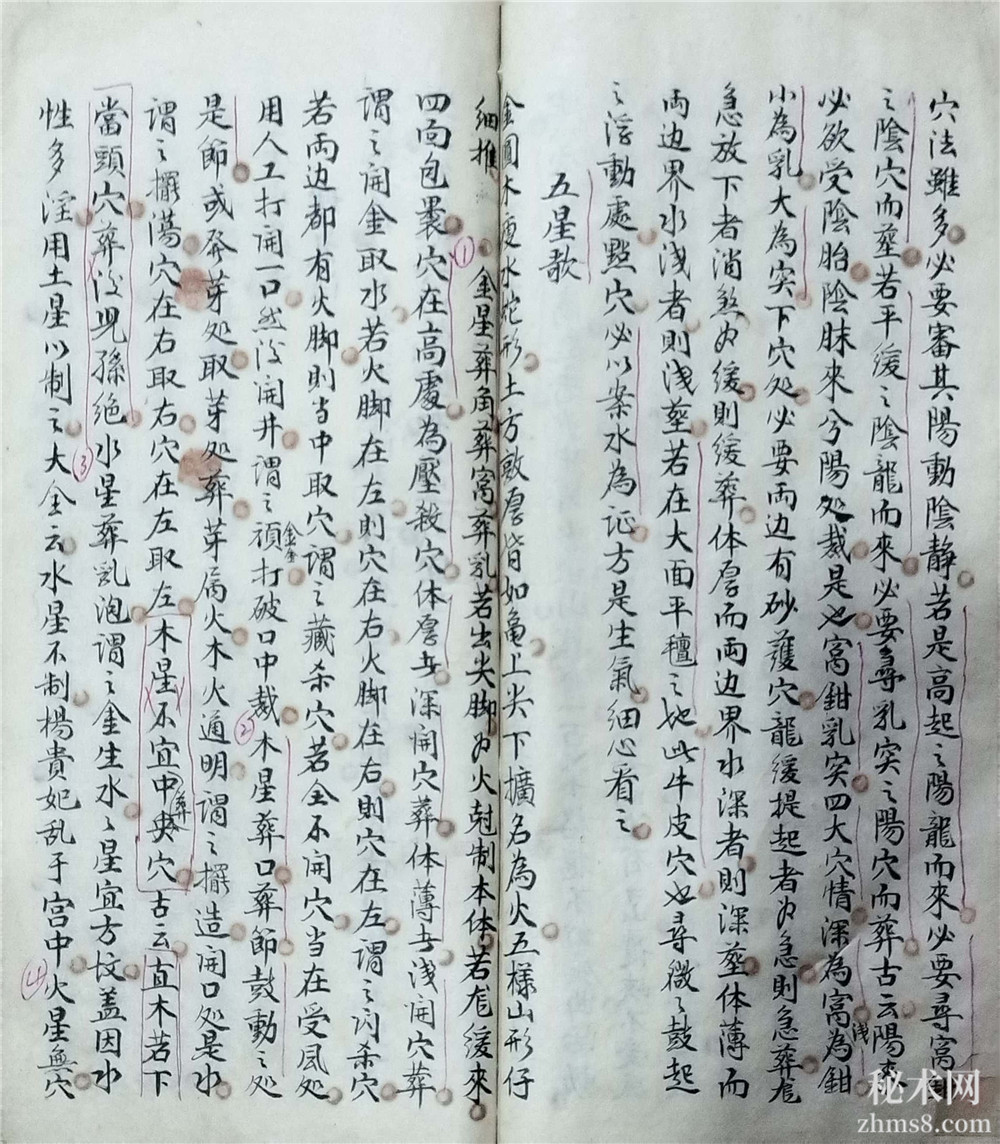 穴法雖多必要審其陽動陰静若是高起之陽龍而來必要尋窩鉗
之陰穴而塟若平緩之陰龍而來必要尋乳突之陽穴而葬古云陽來
必欲受陰胎陰脉來兮陽処裁是也窩鉗乳突四大穴情深為窩浅為鉗
小為乳大為突下穴処必要両边有砂護穴龍緩提起者為急則急葬龙
急放下者消煞为緩則緩葬体厚而両边界水深者則深塟体薄而
両边界水浅者則浅塟若在大面平氊之地此牛皮穴也尋微々鼓起
之浮動處點穴必以案水為証方是生氣細心看之
五星歌
金圓木直水蛇形土方敦厚皆如亀上尖下擴名為火五樣山形仔
細推
①金星葬角葬窩葬乳若出尖脚为火尅制本体若龙緩來
四面包裹穴在高處為壓殺穴体厚者深開穴葬体薄者浅開穴葬
謂之開金取水若火脚在左則穴在右火脚在右則穴在左謂之闪杀穴
若両边都有火脚則当中取穴謂之藏杀穴若金不開穴当在受風処
用人工打開一口然後開井謂之頑金金打破口中裁②木星葬口葬節鼓動之処
是節或発芽処取芽処葬芽属火木火通明謂之擺造開口処是水
謂之擺蕩穴在右取右穴在左取左木星不宜中央葬穴古云直木若下
當頭穴葬後児孫絶③水星葬乳泡謂之金生水々星宜方坟蓋因水
性多淫用土星以制之大全云水星不制楊貴妃乱于宫中④火星無穴
秘术网
zhms8.com